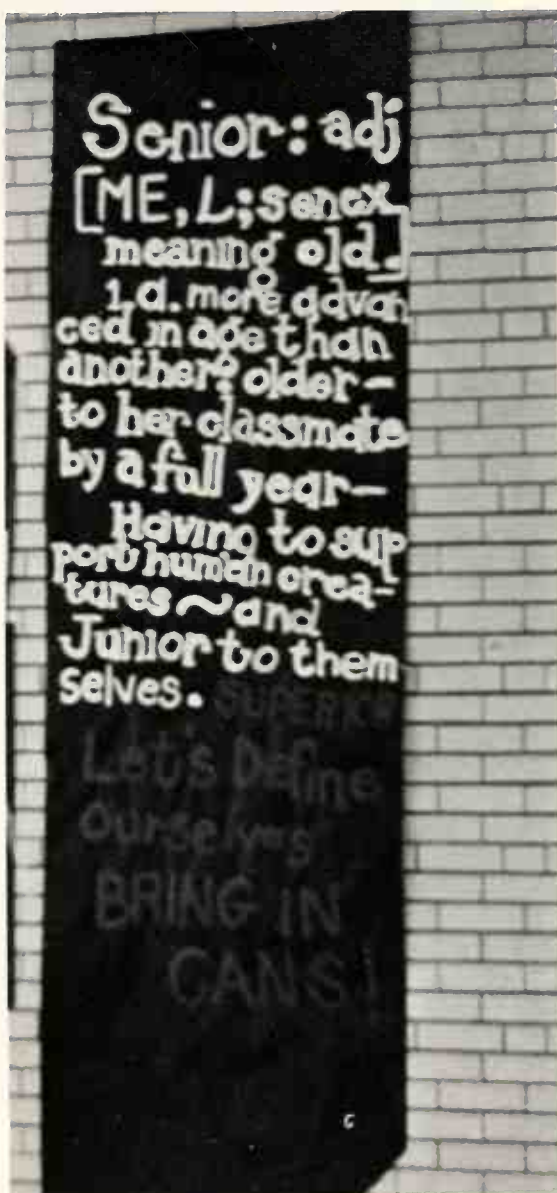 Senior: adj
[ME, L; senex
meaning old.]
1. a. more advan
ced in age than
another: older—
to her classmate
by a full year—
Having to sup
port human crea-
tures ~ and
Junior to them
selves.
Let's Define
Ourselves
BRING IN
CANS!